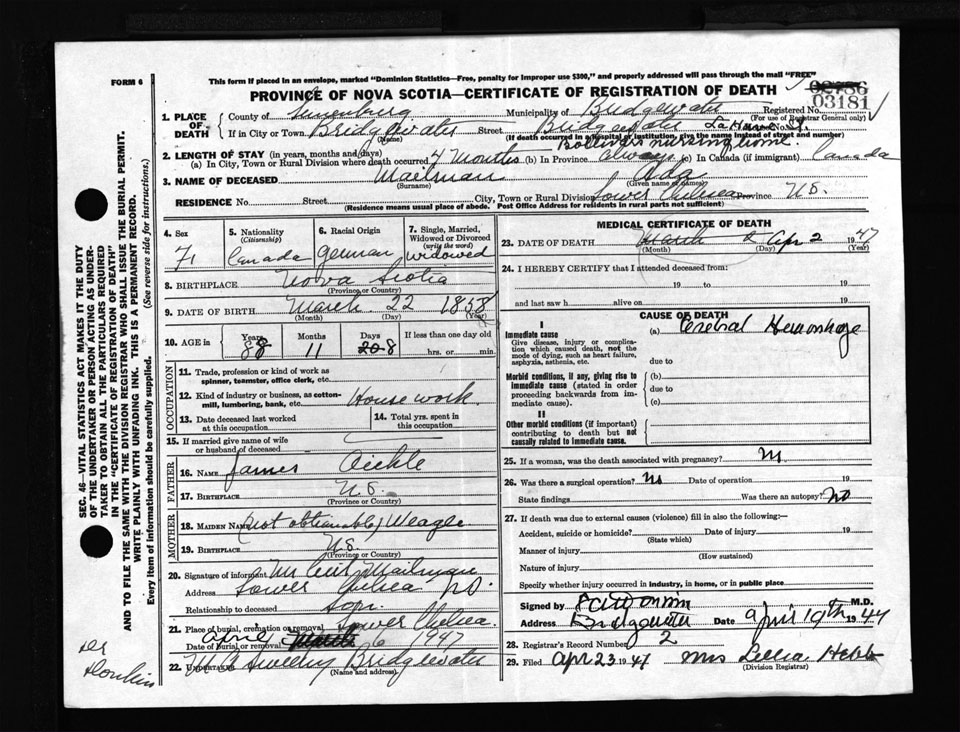 FORM 6
This form if placed in an envelope, marked "Dominion Statistics—Free, penalty for improper use $300," and properly addressed will pass through the mail "FREE"
PROVINCE OF NOVA SCOTIA—CERTIFICATE OF REGISTRATION OF DEATH
02786
03181
1. PLACE OF DEATH
County of Lunenburg Municipality of Bridgewater Registered No.
(For use of Registrar General only)
If in City or Town Bridgewater Street Bridgewater LaHave St.
(Name) (If death occurred in a hospital or institution, give the name instead of street and number)
Bolivers nursing home.
2. LENGTH OF STAY (in years, months and days)
(a) In City, Town or Rural Division where death occurred 4 Months (b) In Province always (c) In Canada (if immigrant) Canada
3. NAME OF DECEASED Mailman Ada
(Surname) (Given name or names)
RESIDENCE No. Street City, Town or Rural Division Lower Chelsea Province N.S.
(Residence means usual place of abode. Post Office Address for residents in rural parts not sufficient)
4. Sex 5. Nationality (Citizenship) 6. Racial Origin 7. Single, Married, Widowed or Divorced (write the word)
F Canada German Widowed
8. BIRTHPLACE Nova Scotia
(Province or Country)
9. DATE OF BIRTH March 22 1858
(Month) (Day) (Year)
10. AGE in Years Months Days If less than one day old
88 11 20 8 hrs. or min.
OCCUPATION
11. Trade, profession or kind of work as spinner, teamster, office clerk, etc.
12. Kind of industry or business, as cotton-mill, lumbering, bank, etc. House work.
13. Date deceased last worked at this occupation
14. Total yrs. spent in this occupation
15. If married give name of wife or husband of deceased
FATHER
16. NAME James Aickle
17. BIRTHPLACE N.S.
(Province or Country)
MOTHER
18. MAIDEN NAME (not obtainable) Weagle
19. BIRTHPLACE N.S.
(Province or Country)
20. Signature of informant Mailman
Address Lower Chelsea N.S.
Relationship to deceased Son.
21. Place of burial, cremation or removal Lower Chelsea.
Date of burial or removal April March 6 1947
22. UNDERTAKER Bridgewater
MEDICAL CERTIFICATE OF DEATH
23. DATE OF DEATH March 2 Apr 2 1947
(Month) (Day) (Year)
24. I HEREBY CERTIFY that I attended deceased from:
19 to 19
and last saw h alive on 19
CAUSE OF DEATH
I
Immediate cause
Give disease, injury or complication which caused death, not the mode of dying, such as heart failure, asphyxia, asthenia, etc.
(a) Cerebral Hemorrhage
due to
Morbid conditions, if any, giving rise to immediate cause (stated in order proceeding backwards from immediate cause).
(b)
due to
(c)
II
Other morbid conditions (if important) contributing to death but not causally related to immediate cause.
25. If a woman, was the death associated with pregnancy? No.
26. Was there a surgical operation? No Date of operation 19
State findings Was there an autopsy? No
27. If death was due to external causes (violence) fill in also the following:—
Accident, suicide or homicide? Date of injury 19
(State which)
Manner of injury
(How sustained)
Nature of injury
Specify whether injury occurred in industry, in home, or in public place
Signed by M.D.
Address Bridgewater Date April 19th 1947
28. Registrar's Record Number 2
29. Filed Apr 23 1947 Mrs Hebb
(Division Registrar)
SEC. 46—VITAL STATISTICS ACT MAKES IT THE DUTY
OF THE UNDERTAKER OR PERSON ACTING AS UNDER-
TAKER TO OBTAIN ALL THE PARTICULARS REQUIRED
IN THE "CERTIFICATE OF REGISTRATION OF DEATH"
AND TO FILE THE SAME WITH THE DIVISION REGISTRAR WHO SHALL ISSUE THE BURIAL PERMIT.
WRITE PLAINLY WITH UNFADING INK. THIS IS A PERMANENT RECORD.
Every item of information should be carefully supplied. (See reverse side for instructions.)